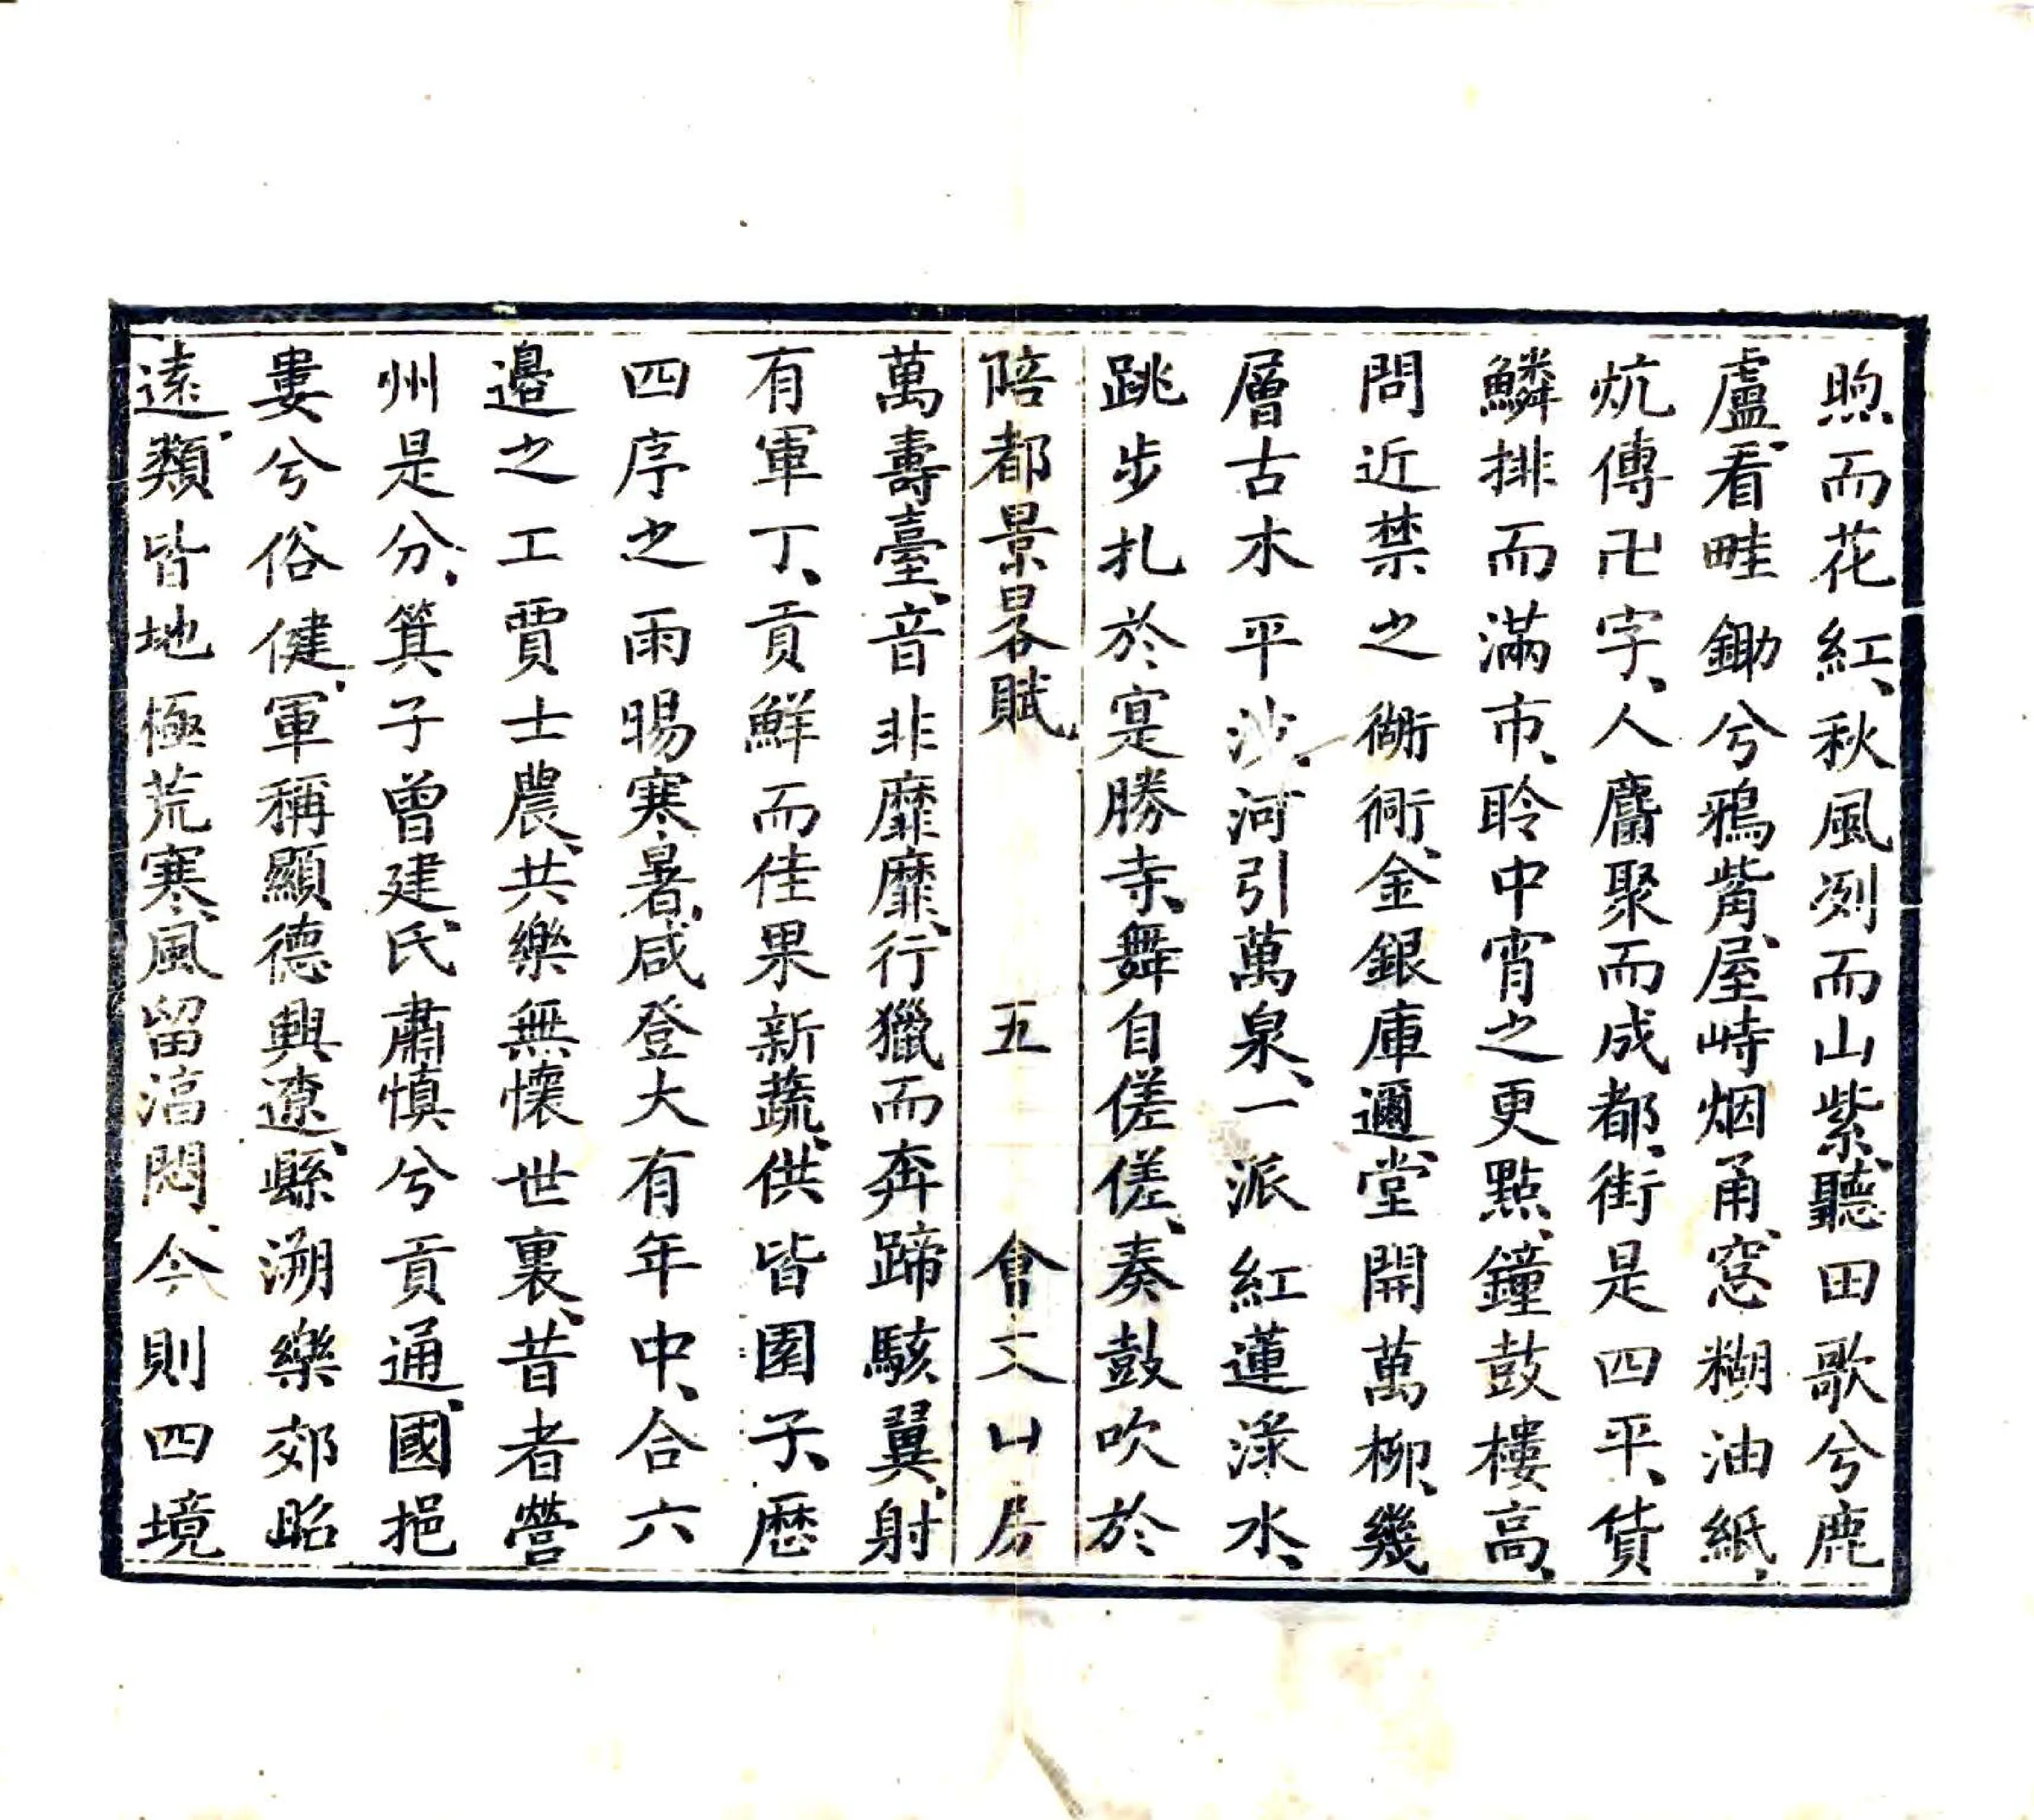 煦而花紅、秋風冽而山紫、聽田歌兮鹿
盧、看畦鋤兮鴉觜、屋峙烟甬、窓糊油紙、
炕傳卍字、人麕聚而成都、街是四平、貨
鱗排而滿市、聆中宵之更點、鐘鼓樓高、
問近禁之衚衕、金銀庫邇、堂開萬柳、幾
層古木平沙、河引萬泉、一派紅蓮淥水、
跳步扎於寔勝寺、舞自傞傞、奏鼓吹於
陪都景畧賦 五 會文山房
萬壽臺、音非靡靡、行獵而奔蹄駭翼、射
有軍丁、貢鮮而佳果新蔬、供皆園子、歷
四序之雨暘寒暑、咸登大有年中、合六
邊之工賈士農、共樂無懷世裏、昔者營
州是分、箕子曾建、氏肅慎兮貢通、國挹
婁兮俗健、軍稱顯德興遼、縣溯樂郊昭
遠、類皆地極荒寒、風留湻悶、今則四境